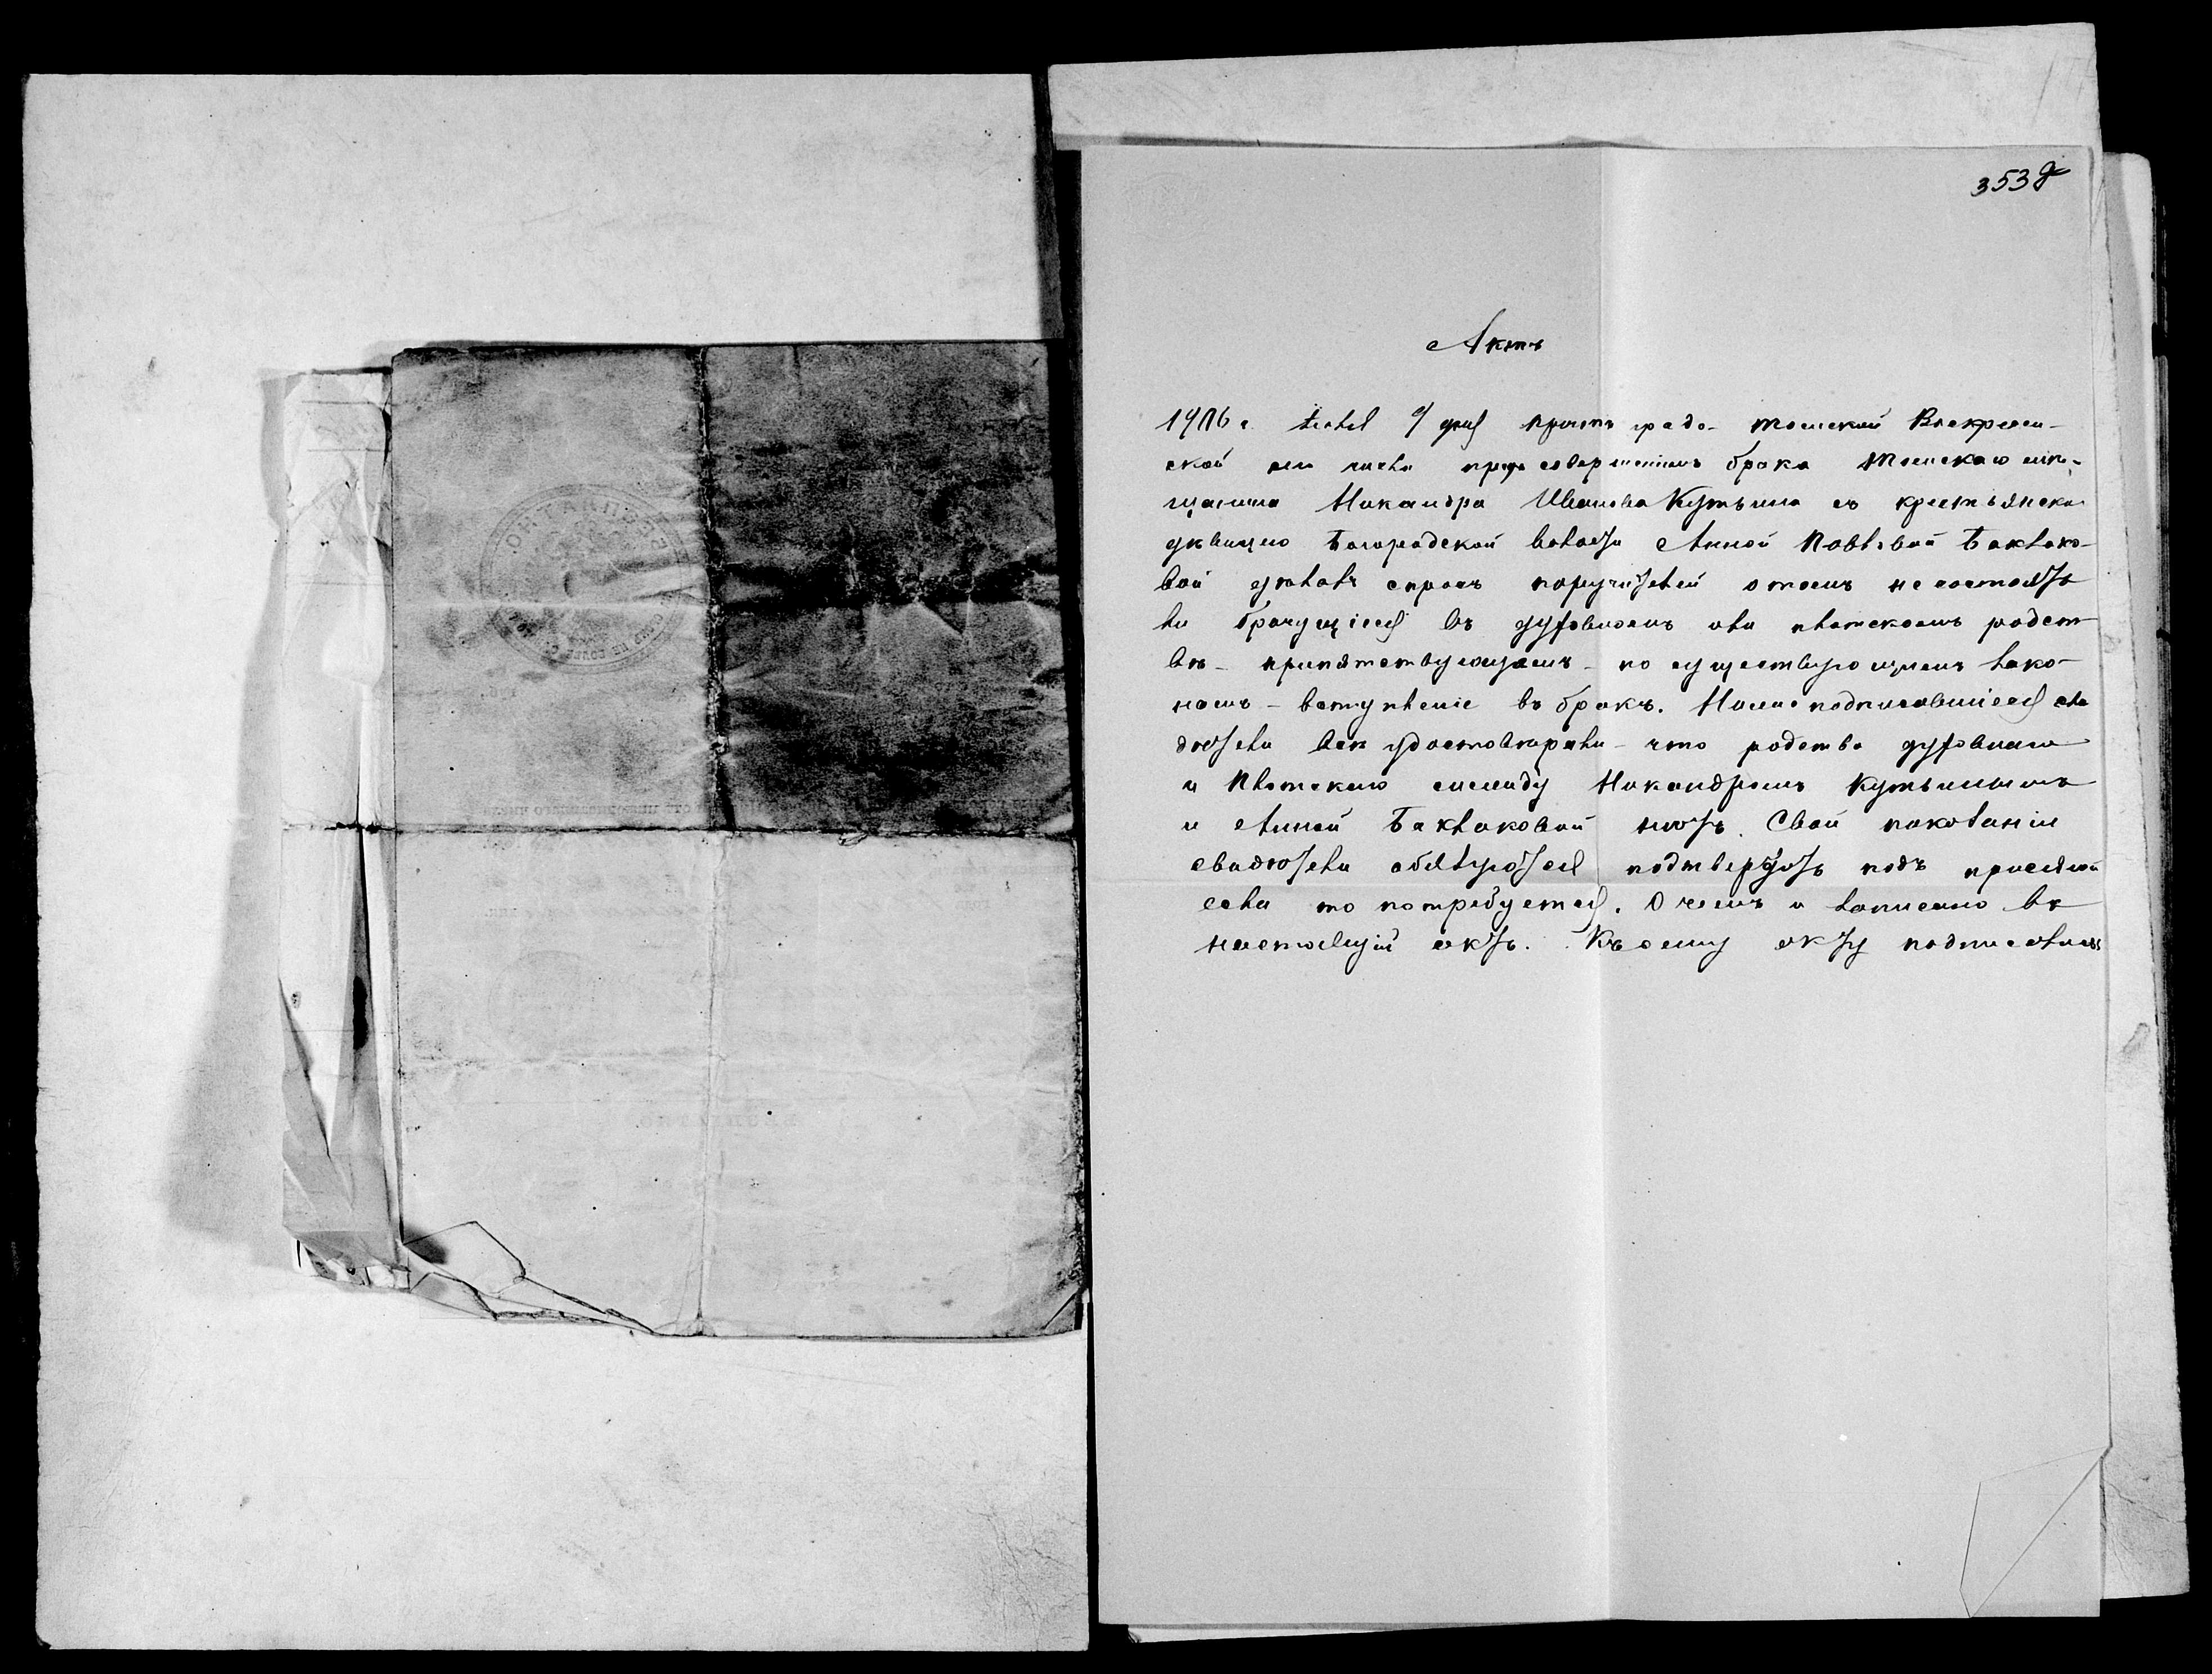 353 д
Актъ
1906 г. Іюля 9 дня причтъ градо-Томской Воскресен-
ской церкви предъ совершеніемъ брака Томскаго мѣ-
щанина Никандра Иванова Кутьина съ крестьянско
дѣвицею Богородской волости Анной Павловой Баклако-
вой дѣлалъ спросъ поручителей о томъ не состоятъ
ли брачущіеся въ духовномъ или плотскомъ родст
вѣ - припятствующемъ - по существующимъ зако-
намъ - вступленіе въ бракъ. Ниже подписавшіеся сви
дѣтели всѣ удостовѣряли - что родства духовнаго
и плотского между Никандромъ Кутьинымъ
и Анной Баклаковой нѣтъ. Свои показанія
свидѣтели обязуются подтвердить подъ присягой
если то потребуется. О чемъ и записано въ
настоящій актъ. Къ сему акту подписались